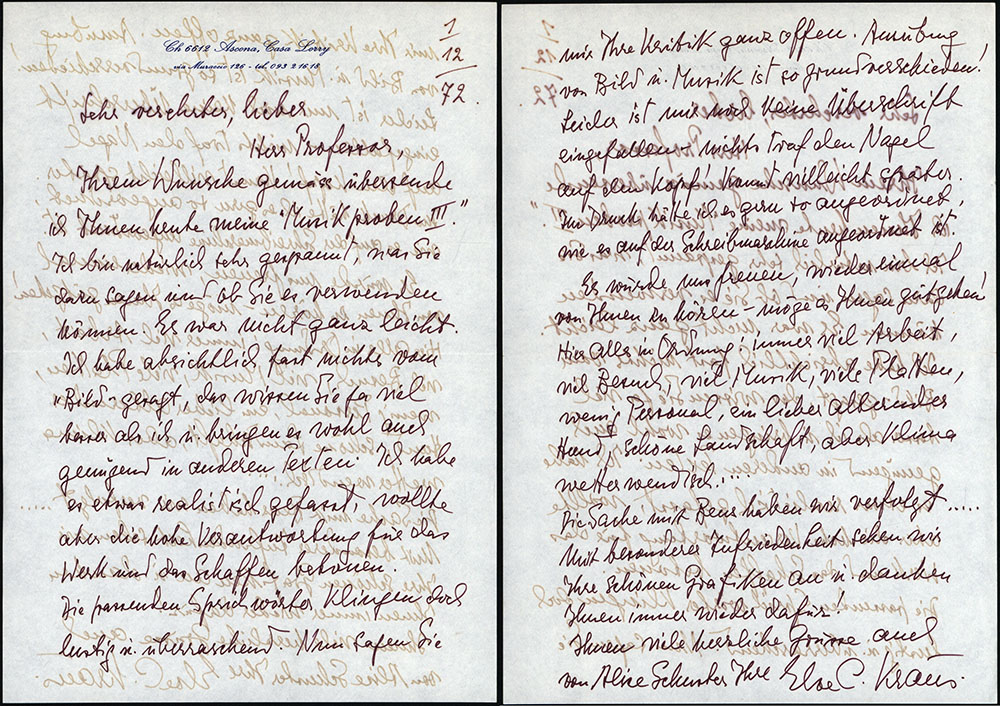 Ch 6612 Ascona, Casa Lorry
via Muraccio 126 - tel. 093 2 16 18
1
12
72.
Sehr verehrter, lieber
Herr Professor,
Ihrem Wunsche gemäss übersende
ich Ihnen heute meine "Musikproben III."
Ich bin natürlich sehr gespannt, was Sie
dazu sagen und ob Sie es verwenden
können. Es war nicht ganz leicht.
Ich habe absichtlich fast nichts vom
"Bild" gesagt, das wissen Sie ja viel
besser als ich u. bringen es wohl auch
genügend in anderen Texten. Ich habe
es etwas realistisch gefasst, wollte
aber die hohe Verantwortung für das
Werk und das Schaffen betonen.
Die passenden Sprichwörter klingen doch
lustig u. überraschend. Nun sagen Sie
mir Ihre Kritik ganz offen. Ausübung
von Bild u. Musik ist so grundverschieden!
Leider ist mir noch keine Überschrift
eingefallen - nichts traf den Nagel
auf den Kopf! Kommt vielleicht später.
Im Druck hätte ich es gern so angeordnet,
wie es auf der Schreibmaschine angeordnet ist.
Es würde uns freuen, wieder einmal
von Ihnen zu hören - möge es Ihnen gutgehen!
Hier Alles in Ordnung: immer viel Arbeit,
viel Besuch, viel Musik, viele Platten,
wenig Personal, ein lieber alternder
Hund, schöne Landschaft, aber Klima
wetterwendisch.....
Die Sache mit haben wir verfolgt.....
Mit besonderer Zufriedenheit sehen wir
Ihre schönen Grafiken an u. danken
Ihnen immer wieder dafür!
Ihnen viele herzliche Grüsse auch
von Alice Schuster Ihre Else C. Kraus.